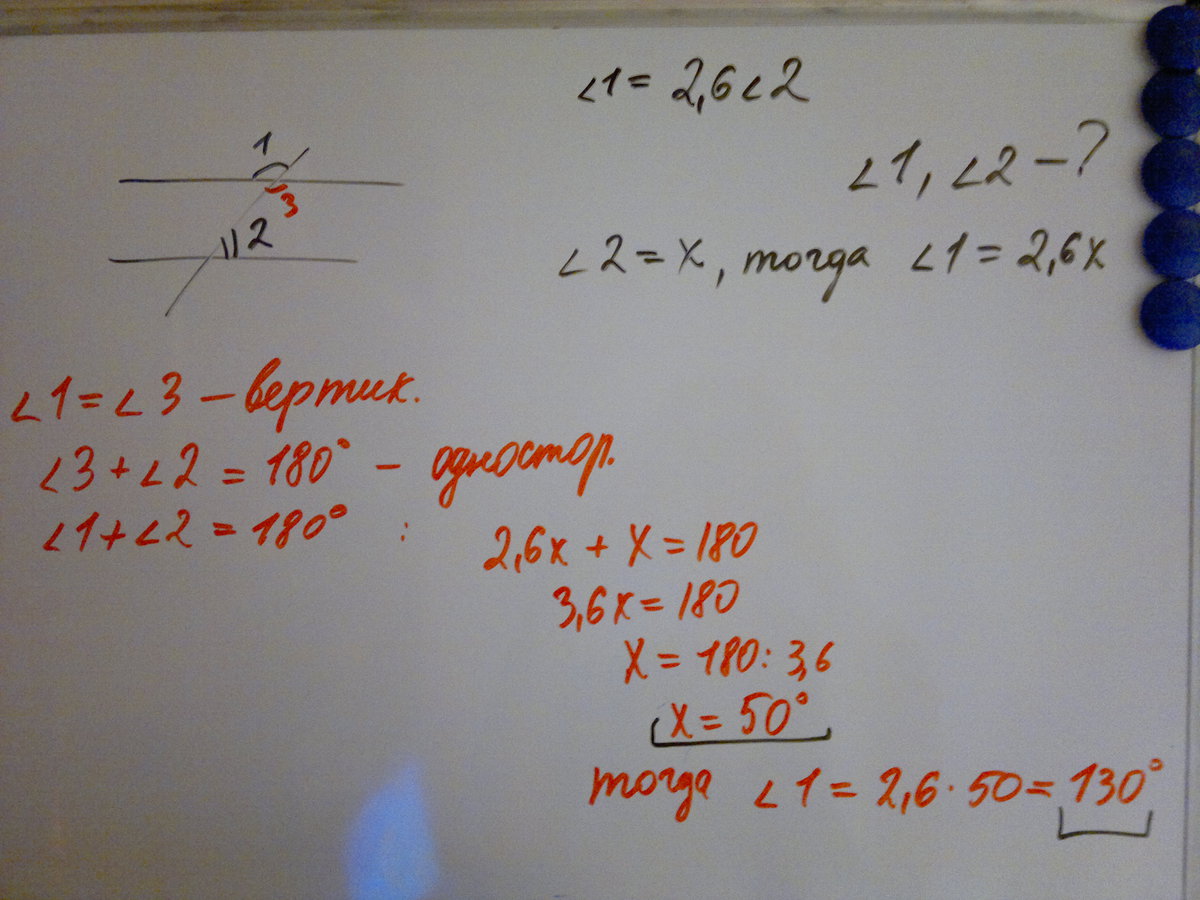 ∠1 = 2,6∠2
1
3
2
∠1, ∠2 – ?
∠2 = x, тогда ∠1 = 2,6x
∠1 = ∠3 – вертик.
∠3 + ∠2 = 180° – одностор.
∠1 + ∠2 = 180° :
2,6x + x = 180
3,6x = 180
x = 180 : 3,6
x = 50°
тогда ∠1 = 2,6 · 50 = 130°